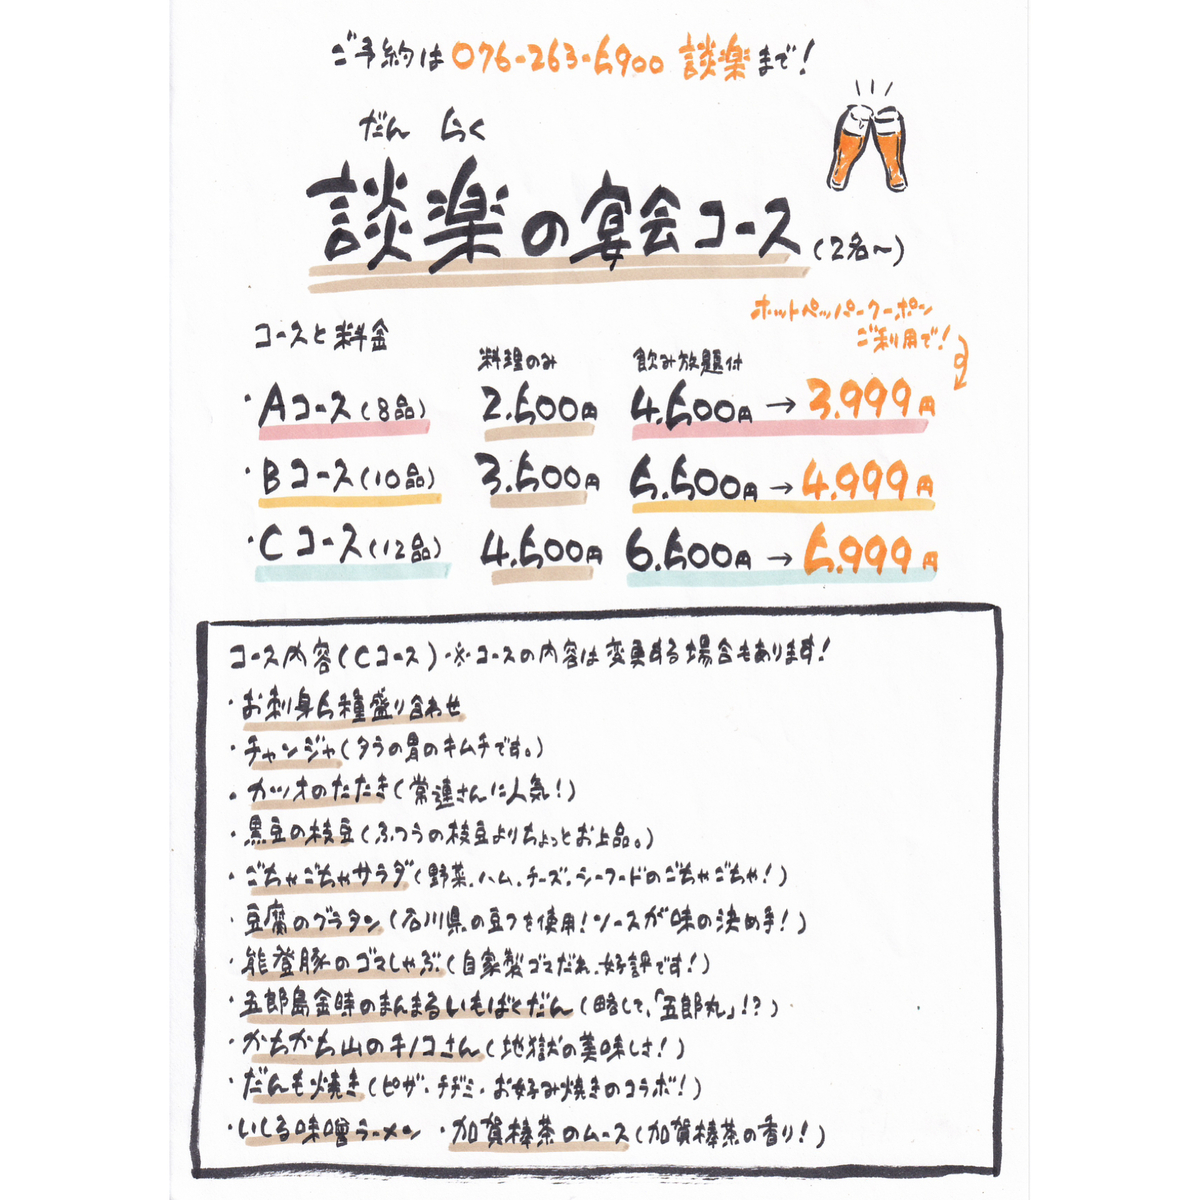 ご予約は 076-263-5900 談楽まで!
だん らく
談楽の宴会コース(2名～)
ホットペッパークーポン
ご利用で!
コースと料金
料理のみ 飲み放題付
・Aコース(8品) 2.500円 4.500円→3.999円
・Bコース(10品) 3.500円 5.500円→4.999円
・Cコース(12品) 4.500円 6.500円→5.999円
コース内容(Cコース)・※コースの内容は変更する場合もあります!
・お刺身5種盛り合わせ
・チャンジャ(タラの胃のキムチです。)
・カツオのたたき(常連さんに人気!)
・黒豆の枝豆(ふつうの枝豆よりちょっとお上品。)
・ごちゃごちゃサラダ(野菜、ハム、チーズ、シーフードのごちゃごちゃ!)
・豆腐のグラタン(石川県の豆フを使用!ソースが味の決め手!)
・能登豚のゴマしゃぶ(自家製ゴマだれ、好評です!)
・五郎島金時のまんまるいもばくだん(略して、「五郎丸」!?)
・かちかち山のキノコさん(地獄の美味しさ!)
・だんも焼き(ピザ・チヂミ・お好み焼きのコラボ!)
・いしる味噌ラーメン ・加賀棒茶のムース(加賀棒茶の香り!)